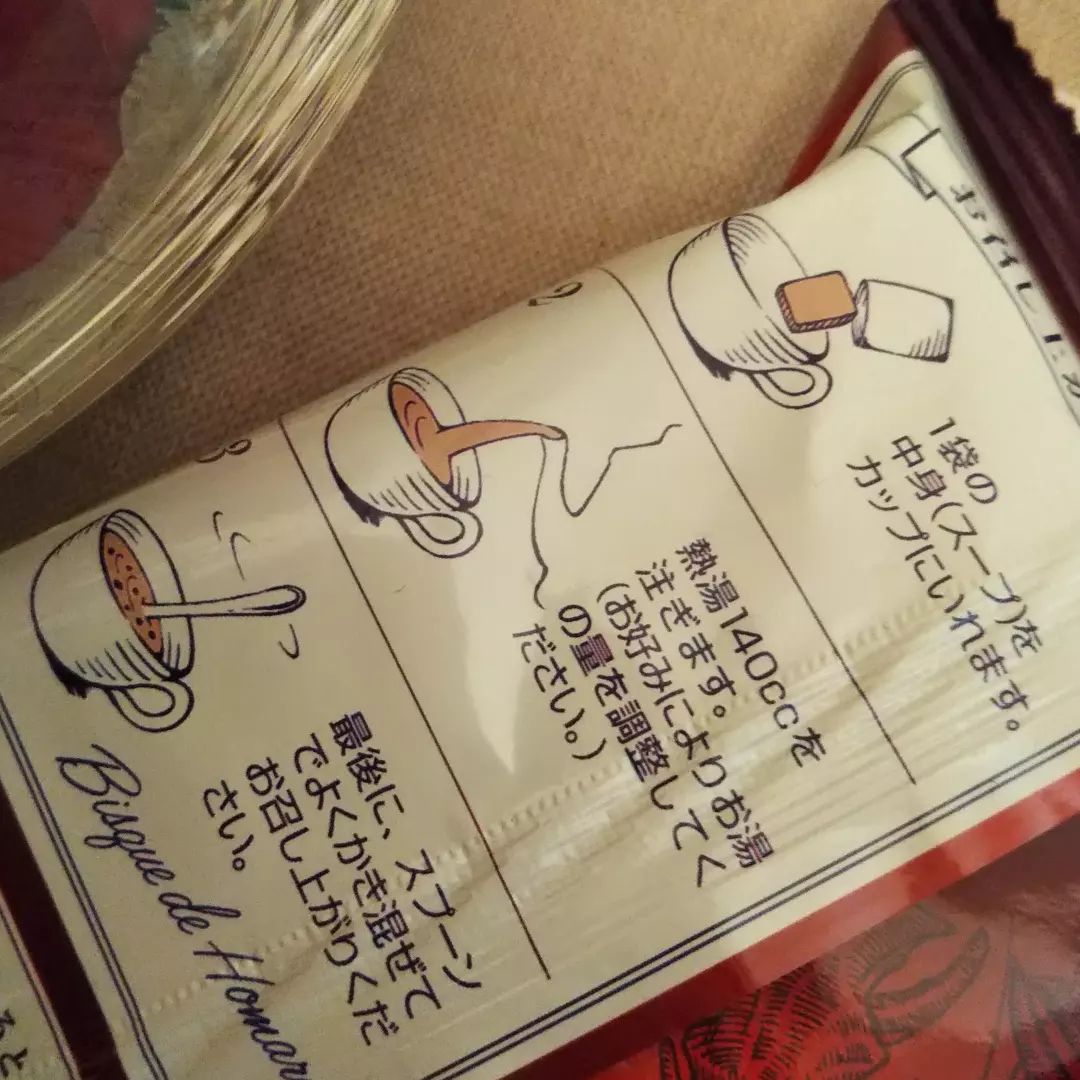 お召し上が
1袋の
中身(スープ)を
カップにいれます。
2
熱湯140ccを
注ぎます。
(お好みによりお湯
の量を調整してく
ださい。)
3
最後に、スプーン
でよくかき混ぜて
お召し上がりくだ
さい。
Bisque de Homar
ると